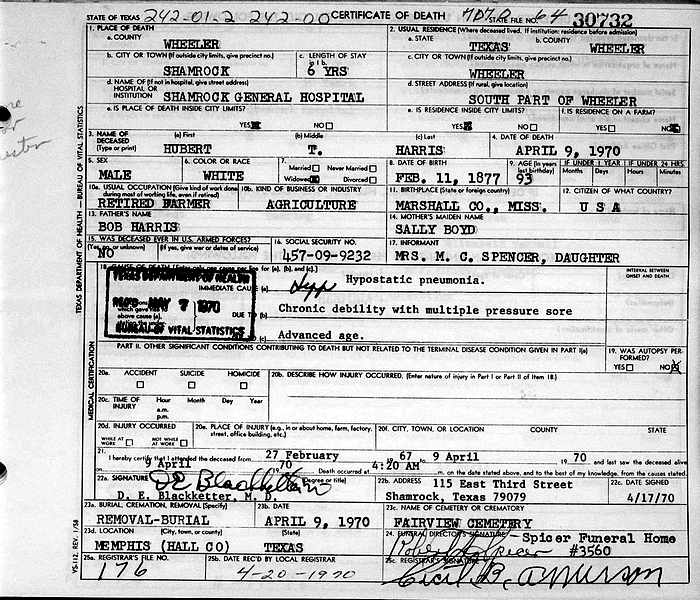 STATE OF TEXAS 242-01-2 242-00 CERTIFICATE OF DEATH STATE FILE NO. 64 30732
1. PLACE OF DEATH
a. COUNTY
WHEELER
2. USUAL RESIDENCE (Where deceased lived. If institution: residence before admission)
a. STATE
TEXAS
b. COUNTY
WHEELER
b. CITY OR TOWN (If outside city limits, give precinct no.)
SHAMROCK
c. LENGTH OF STAY
in 1 b.
6 YRS
c. CITY OR TOWN (If outside city limits, give precinct no.)
WHEELER
d. NAME OF (If not in hospital, give street address)
HOSPITAL OR
INSTITUTION SHAMROCK GENERAL HOSPITAL
d. STREET ADDRESS (If rural, give location)
SOUTH PART OF WHEELER
e. IS PLACE OF DEATH INSIDE CITY LIMITS?
YES NO
e. IS RESIDENCE INSIDE CITY LIMITS?
YES NO
f. IS RESIDENCE ON A FARM?
YES NO
3. NAME OF
DECEASED
(Type or print)
(a) First
HUBERT
(b) Middle
T.
(c) Last
HARRIS
4. DATE OF DEATH
APRIL 9, 1970
5. SEX
MALE
6. COLOR OR RACE
WHITE
7.
Married Never Married
Widowed Divorced
8. DATE OF BIRTH
FEB. 11, 1877
9. AGE (In years
last birthday)
93
IF UNDER 1 YEAR
Months Days
IF UNDER 24 HRS.
Hours Min.
10a. USUAL OCCUPATION (Give kind of work done
during most of working life, even if retired)
RETIRED FARMER
10b. KIND OF BUSINESS OR INDUSTRY
AGRICULTURE
11. BIRTHPLACE (State or foreign country)
MARSHALL CO., MISS.
12. CITIZEN OF WHAT COUNTRY?
U S A
13. FATHER'S NAME
BOB HARRIS
14. MOTHER'S MAIDEN NAME
SALLY BOYD
15. WAS DECEASED EVER IN U.S. ARMED FORCES?
(Yes, no, or unknown) (If yes, give war or dates of service)
NO
16. SOCIAL SECURITY NO.
457-09-9232
17. INFORMANT
MRS. M. C. SPENCER, DAUGHTER
18. CAUSE OF DEATH (Enter only one cause per line for (a), (b), and (c).)
INTERVAL BETWEEN
ONSET AND DEATH
TEXAS DEPARTMENT OF HEALTH
REC'D MAY 7 1970
BUREAU OF VITAL STATISTICS
IMMEDIATE CAUSE (a) Hypostatic pneumonia.
which gave rise to
above cause (a),
DUE TO (b) Chronic debility with multiple pressure sore
(c) Advanced age.
PART II. OTHER SIGNIFICANT CONDITIONS CONTRIBUTING TO DEATH BUT NOT RELATED TO THE TERMINAL DISEASE CONDITION GIVEN IN PART I(a)
19. WAS AUTOPSY PERFORMED?
YES NO
20a. ACCIDENT SUICIDE HOMICIDE
20b. DESCRIBE HOW INJURY OCCURRED. (Enter nature of injury in Part I or Part II of Item 18.)
20c. TIME OF
INJURY
Hour Month Day Year
a.m.
p.m.
20d. INJURY OCCURRED
WHILE AT
WORK
NOT WHILE
AT WORK
20e. PLACE OF INJURY (e.g., in or about home, farm, factory,
street, office building, etc.)
20f. CITY, TOWN, OR LOCATION COUNTY STATE
21.
I hereby certify that I attended the deceased from 27 February 19 67 to 9 April 19 70 and last saw the deceased alive
9 April 19 70 Death occurred at 4:20 AM m. on the date stated above, and to the best of my knowledge, from the causes stated.
22a. SIGNATURE DE Blackketter (Degree or title)
D. E. Blackketter, M. D.
22b. ADDRESS 115 East Third Street
Shamrock, Texas 79079
22c. DATE SIGNED
4/17/70
23a. BURIAL, CREMATION, REMOVAL (Specify)
REMOVAL-BURIAL
23b. DATE
APRIL 9, 1970
23c. NAME OF CEMETERY OR CREMATORY
FAIRVIEW CEMETERY
23d. LOCATION (City, town, or county) (State)
MEMPHIS (HALL CO) TEXAS
24. FUNERAL DIRECTOR'S SIGNATURE
Spicer Funeral Home
#3560
25a. REGISTRAR'S FILE NO.
176
25b. DATE REC'D BY LOCAL REGISTRAR
4-20-1970
25c. REGISTRAR'S SIGNATURE
Cecil B.
TEXAS DEPARTMENT OF HEALTH — BUREAU OF VITAL STATISTICS
MEDICAL CERTIFICATION
VS-112, REV. 1/58